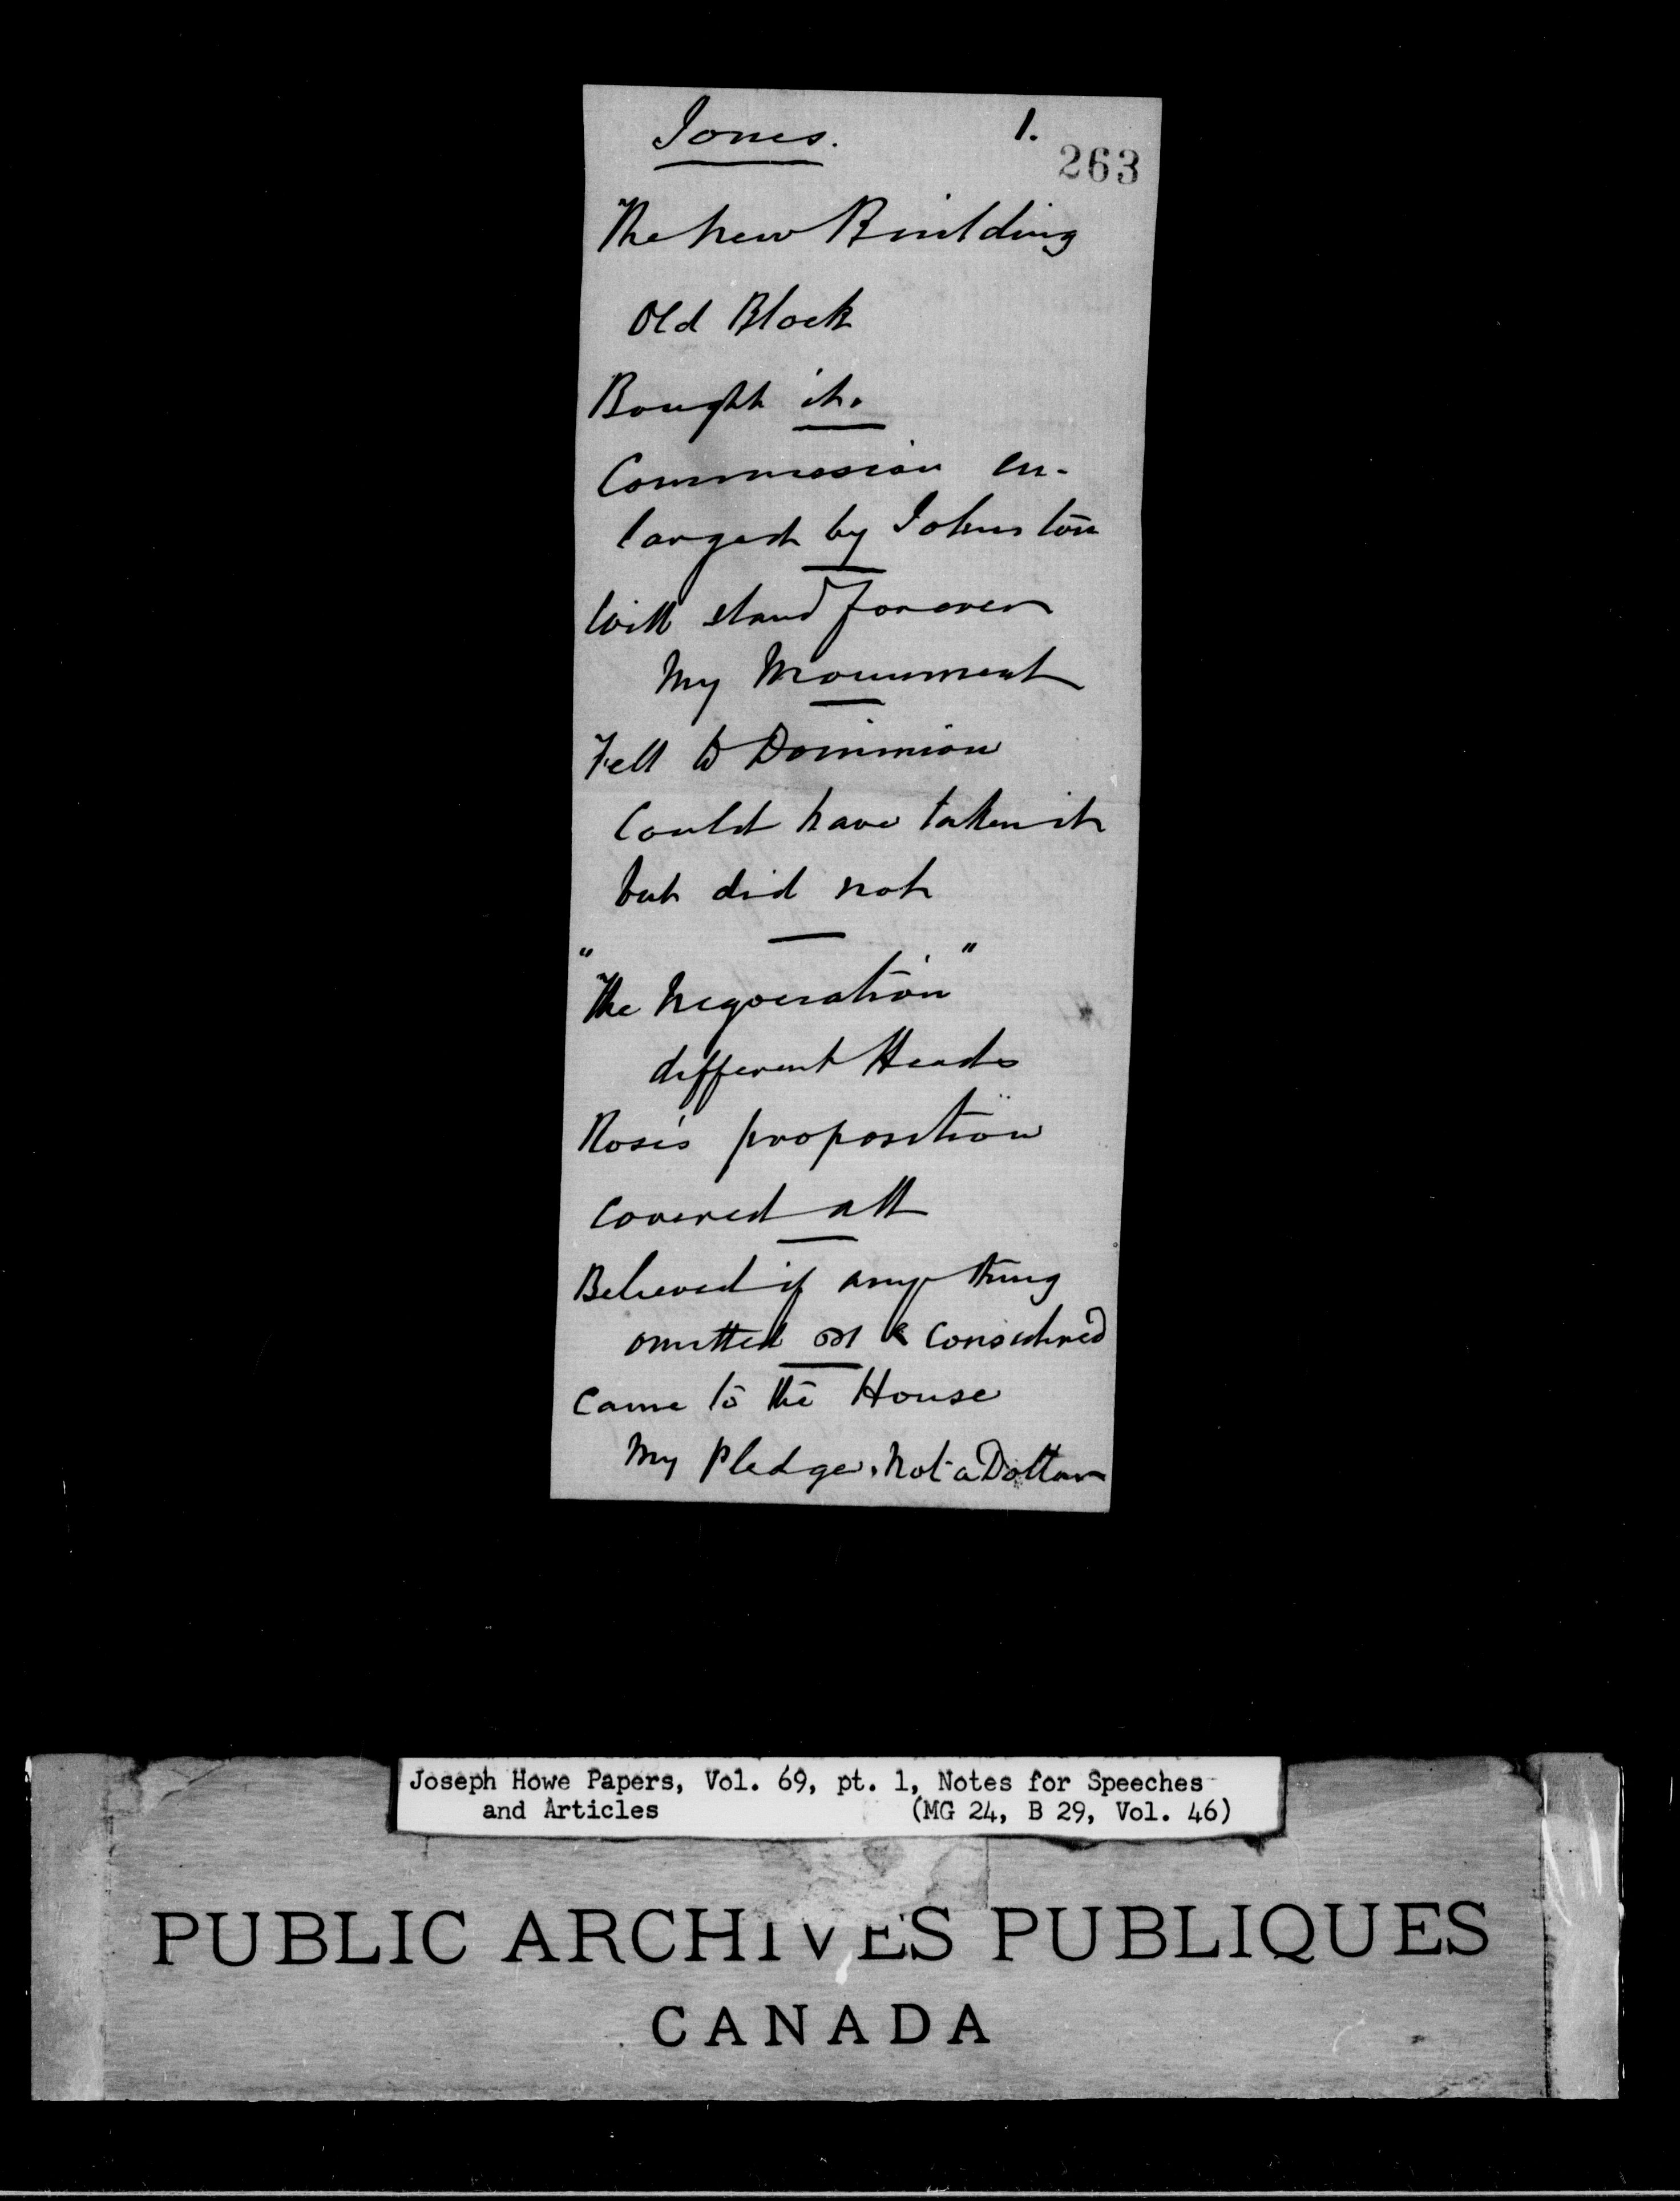 Jones. 1.
263
The New Building
Old Block
Bought it.
Commission en-
larged by Johnston
Will stand forever
My Monument
Fell to Dominion
Could have taken it
but did not
"The Negociation"
different Heads
Rose's proposition
covered all
Believed if any thing
omitted considered
Came to the House
My Pledge. Not a Dollar
Joseph Howe Papers, Vol. 69, pt. 1, Notes for Speeches
and Articles (MG 24, B 29, Vol. 46)
PUBLIC ARCHIVES PUBLIQUES
CANADA